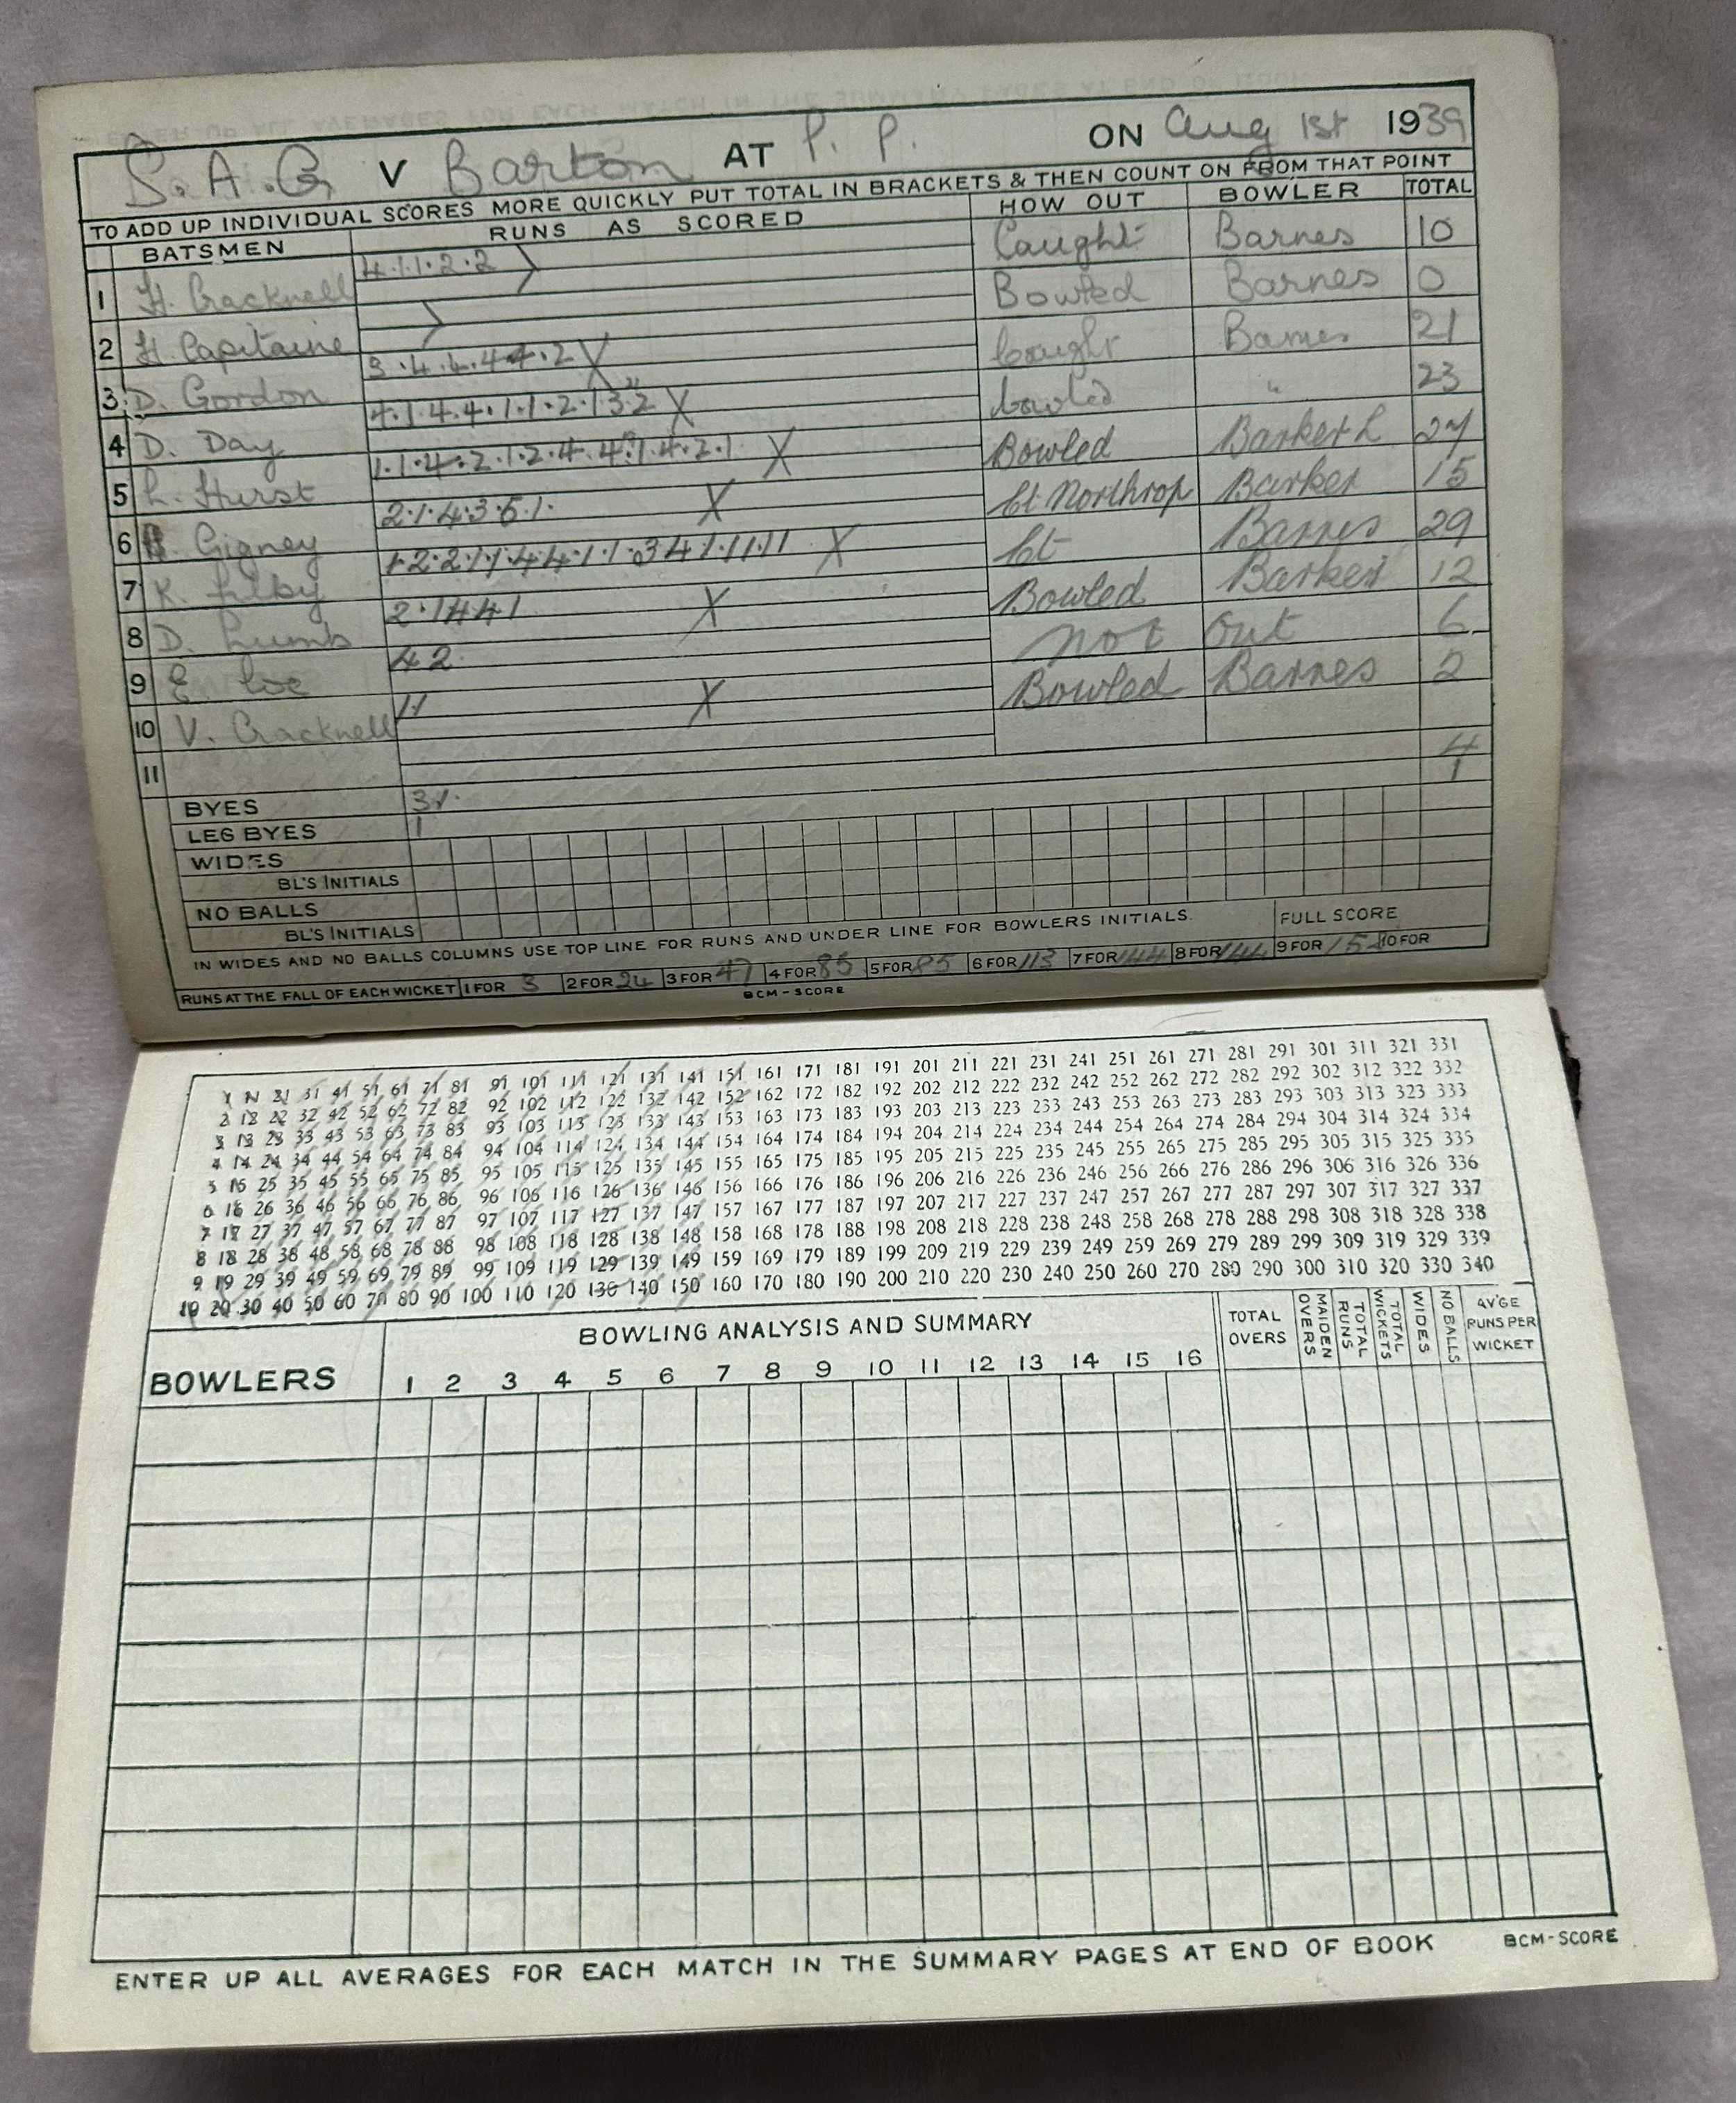 S. A. G. V Barton AT P. P. ON Aug 1st 1939
TO ADD UP INDIVIDUAL SCORES MORE QUICKLY PUT TOTAL IN BRACKETS & THEN COUNT ON FROM THAT POINT
BATSMEN RUNS AS SCORED HOW OUT BOWLER TOTAL
1 H. Cracknell 4.1.1.2.2 Caught Barnes 10
2 H. Capitaine Bowled Barnes 0
3 D. Gordon 3.4.4.4.4.2 X Caught Barnes 21
4 D. Day 4.1.4.4.1.1.2.1 3.2 X bowled " 23
5 L. Hurst 1.1.4.2.1.2.4.4.1.4.2.1 X Bowled Barker L 27
6 Gigney 2.1.4.3.  1. X Ct Northrop Barker 15
7 K. Lilby 1.2.2.1.1.4.4.1.1.3 4 1.1.1.1.1 X Ct Barnes 29
8 D. Lumb 2.1 4 4.1 X Bowled Barker 12
9 E 4 2. not out 6
10 V. Cracknell 1.1 X Bowled Barnes 2
11
BYES 3 1. 4
LEG BYES 1 1
WIDES
BL'S INITIALS
NO BALLS
BL'S INITIALS
IN WIDES AND NO BALLS COLUMNS USE TOP LINE FOR RUNS AND UNDER LINE FOR BOWLERS INITIALS. FULL SCORE
RUNS AT THE FALL OF EACH WICKET 1 FOR 3 2 FOR 24 3 FOR 47 4 FOR 85 5 FOR 85 6 FOR 113 7 FOR 144 8 FOR 144 9 FOR 10 FOR
BCM-SCORE
1 11 21 31 41 51 61 71 81 91 101 111 121 131 141 151 161 171 181 191 201 211 221 231 241 251 261 271 281 291 301 311 321 331
2 12 22 32 42 52 62 72 82 92 102 112 122 132 142 152 162 172 182 192 202 212 222 232 242 252 262 272 282 292 302 312 322 332
3 13 23 33 43 53 63 73 83 93 103 113 123 133 143 153 163 173 183 193 203 213 223 233 243 253 263 273 283 293 303 313 323 333
4 14 24 34 44 54 64 74 84 94 104 114 124 134 144 154 164 174 184 194 204 214 224 234 244 254 264 274 284 294 304 314 324 334
5 15 25 35 45 55 65 75 85 95 105 115 125 135 145 155 165 175 185 195 205 215 225 235 245 255 265 275 285 295 305 315 325 335
6 16 26 36 46 56 66 76 86 96 106 116 126 136 146 156 166 176 186 196 206 216 226 236 246 256 266 276 286 296 306 316 326 336
7 17 27 37 47 57 67 77 87 97 107 117 127 137 147 157 167 177 187 197 207 217 227 237 247 257 267 277 287 297 307 317 327 337
8 18 28 38 48 58 68 78 88 98 108 118 128 138 148 158 168 178 188 198 208 218 228 238 248 258 268 278 288 298 308 318 328 338
9 19 29 39 49 59 69 79 89 99 109 119 129 139 149 159 169 179 189 199 209 219 229 239 249 259 269 279 289 299 309 319 329 339
10 20 30 40 50 60 70 80 90 100 110 120 130 140 150 160 170 180 190 200 210 220 230 240 250 260 270 280 290 300 310 320 330 340
BOWLING ANALYSIS AND SUMMARY
BOWLERS 1 2 3 4 5 6 7 8 9 10 11 12 13 14 15 16 TOTAL OVERS MAIDEN OVERS TOTAL RUNS TOTAL WICKETS WIDES NO BALLS AV'GE RUNS PER WICKET
ENTER UP ALL AVERAGES FOR EACH MATCH IN THE SUMMARY PAGES AT END OF BOOK BCM-SCORE